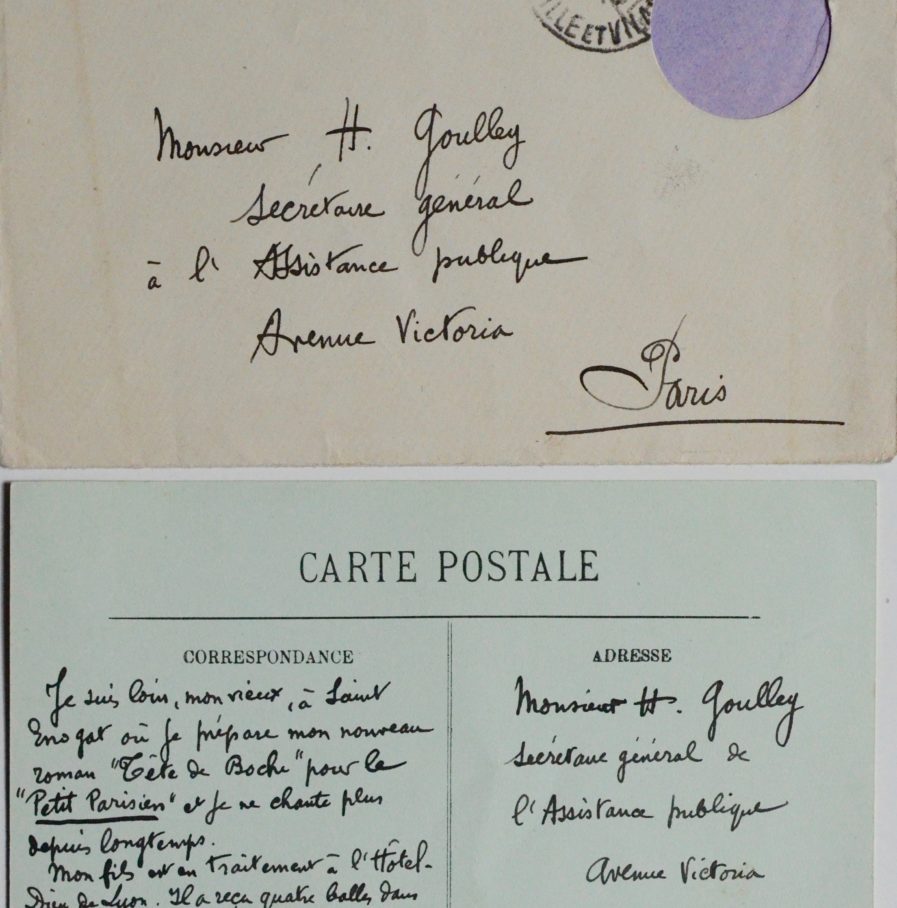 ILLE ET VILAI
Monsieur H. Goulley
Secrétaire général
à l'Assistance publique
Avenue Victoria
Paris
CARTE POSTALE
CORRESPONDANCE
Je suis loin, mon vieux, à Saint
Enogat où je prépare mon nouveau
roman "Tête de Boche" pour le
"Petit Parisien" et je ne chante plus
depuis longtemps.
Mon fils est en traitement à l'Hôtel-
Dieu de Lyon. Il a reçu quatre balles dans
ADRESSE
Monsieur H. Goulley
Secrétaire général de
l'Assistance publique
Avenue Victoria